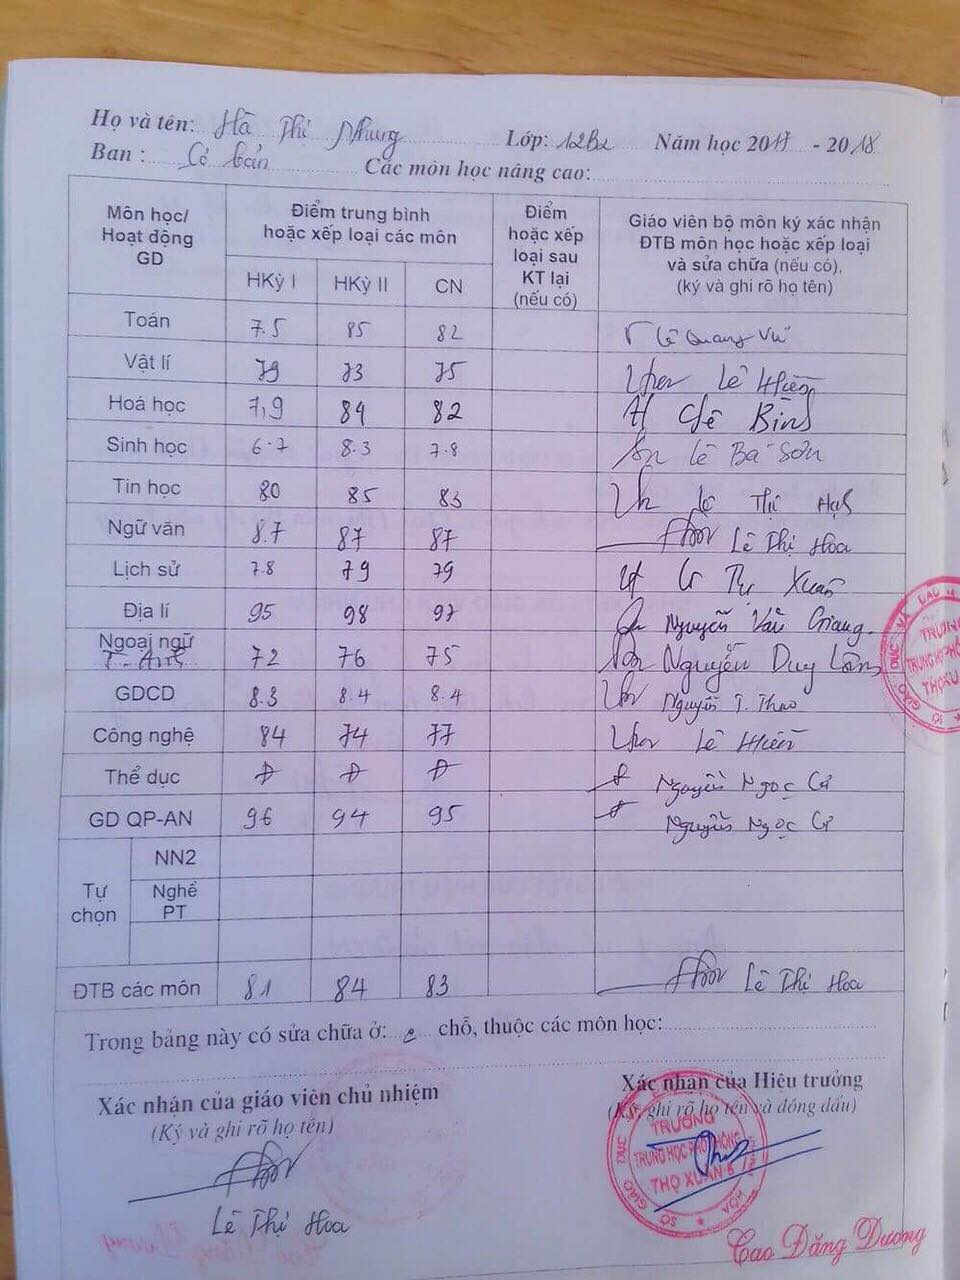 Họ và tên: Hà Thị Nhung Lớp: 12B2 Năm học 2017 - 2018
Ban : Cơ bản Các môn học nâng cao:
Môn học/ Hoạt động GD
Điểm trung bình hoặc xếp loại các môn
HKỳ I HKỳ II CN
Điểm hoặc xếp loại sau KT lại (nếu có)
Giáo viên bộ môn ký xác nhận ĐTB môn học hoặc xếp loại và sửa chữa (nếu có), (ký và ghi rõ họ tên)
Toán 7.5 85 82 Lê Quang Vũ
Vật lí 79 73 75 Lê Hiền
Hoá học 7,9 84 82
Sinh học 6.7 8.3 7.8 Lê Bá Sơn
Tin học 80 85 83 Lê Thị
Ngữ văn 8.7 87 87 Lê Thị Hoa
Lịch sử 7.8 79 79 Xuân
Địa lí 95 98 97 Nguyễn Văn Giang
Ngoại ngữ
T. Anh 72 76 75 Nguyễn Duy
GDCD 8.3 8.4 8.4 Nguyễn T. Thao
Công nghệ 84 74 77 Lê Hiền
Thể dục Đ Đ Đ Nguyễn Ngọc
GD QP-AN 96 94 95 Nguyễn Ngọc
Tự chọn
NN2
Nghề PT
ĐTB các môn 81 84 83 Lê Thị Hoa
Trong bảng này có sửa chữa ở: chỗ, thuộc các môn học:
Xác nhận của giáo viên chủ nhiệm
(Ký và ghi rõ họ tên)
Lê Thị Hoa
Xác nhận của Hiệu trưởng
(Ký ghi rõ họ tên và đóng dấu)
TRƯỜNG
TRUNG HỌC PHỔ THÔNG
THỌ XUÂN 5
Cao Đăng Dương